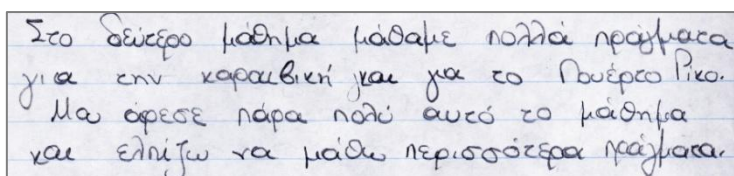 Στο δεύτερο μάθημα μάθαμε πολλά πράγματα
για την καραιβική και για το Πουέρτο Ρίκο.
Μα άρεσε πάρα πολύ αυτό το μάθημα
και ελπίζω να μάθω περισσότερα πράγματα.